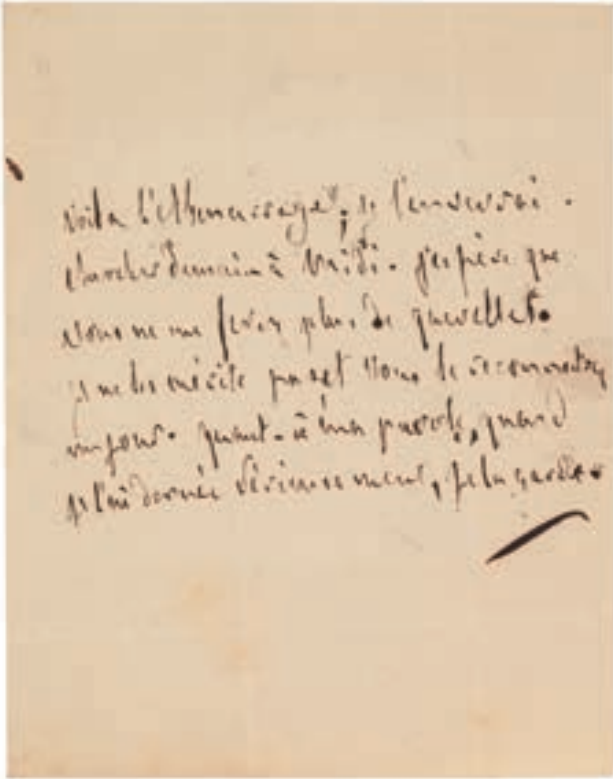 voila l'Ethnerrazya ; je l'enverrai
chercher demain à Midi. j'espère que
vous ne me ferez plus de querelles.
je ne les mérite pas et vous le reconnaitrez
un jour. quant-à ma parole, quand
je l'ai donnée sérieusement, je la garde.